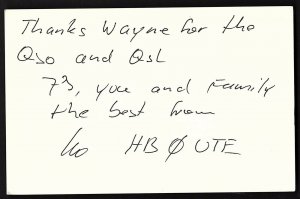 Thanks Wayne for the
Qso and Qsl
73, you and Family
the best from
HBØUTE